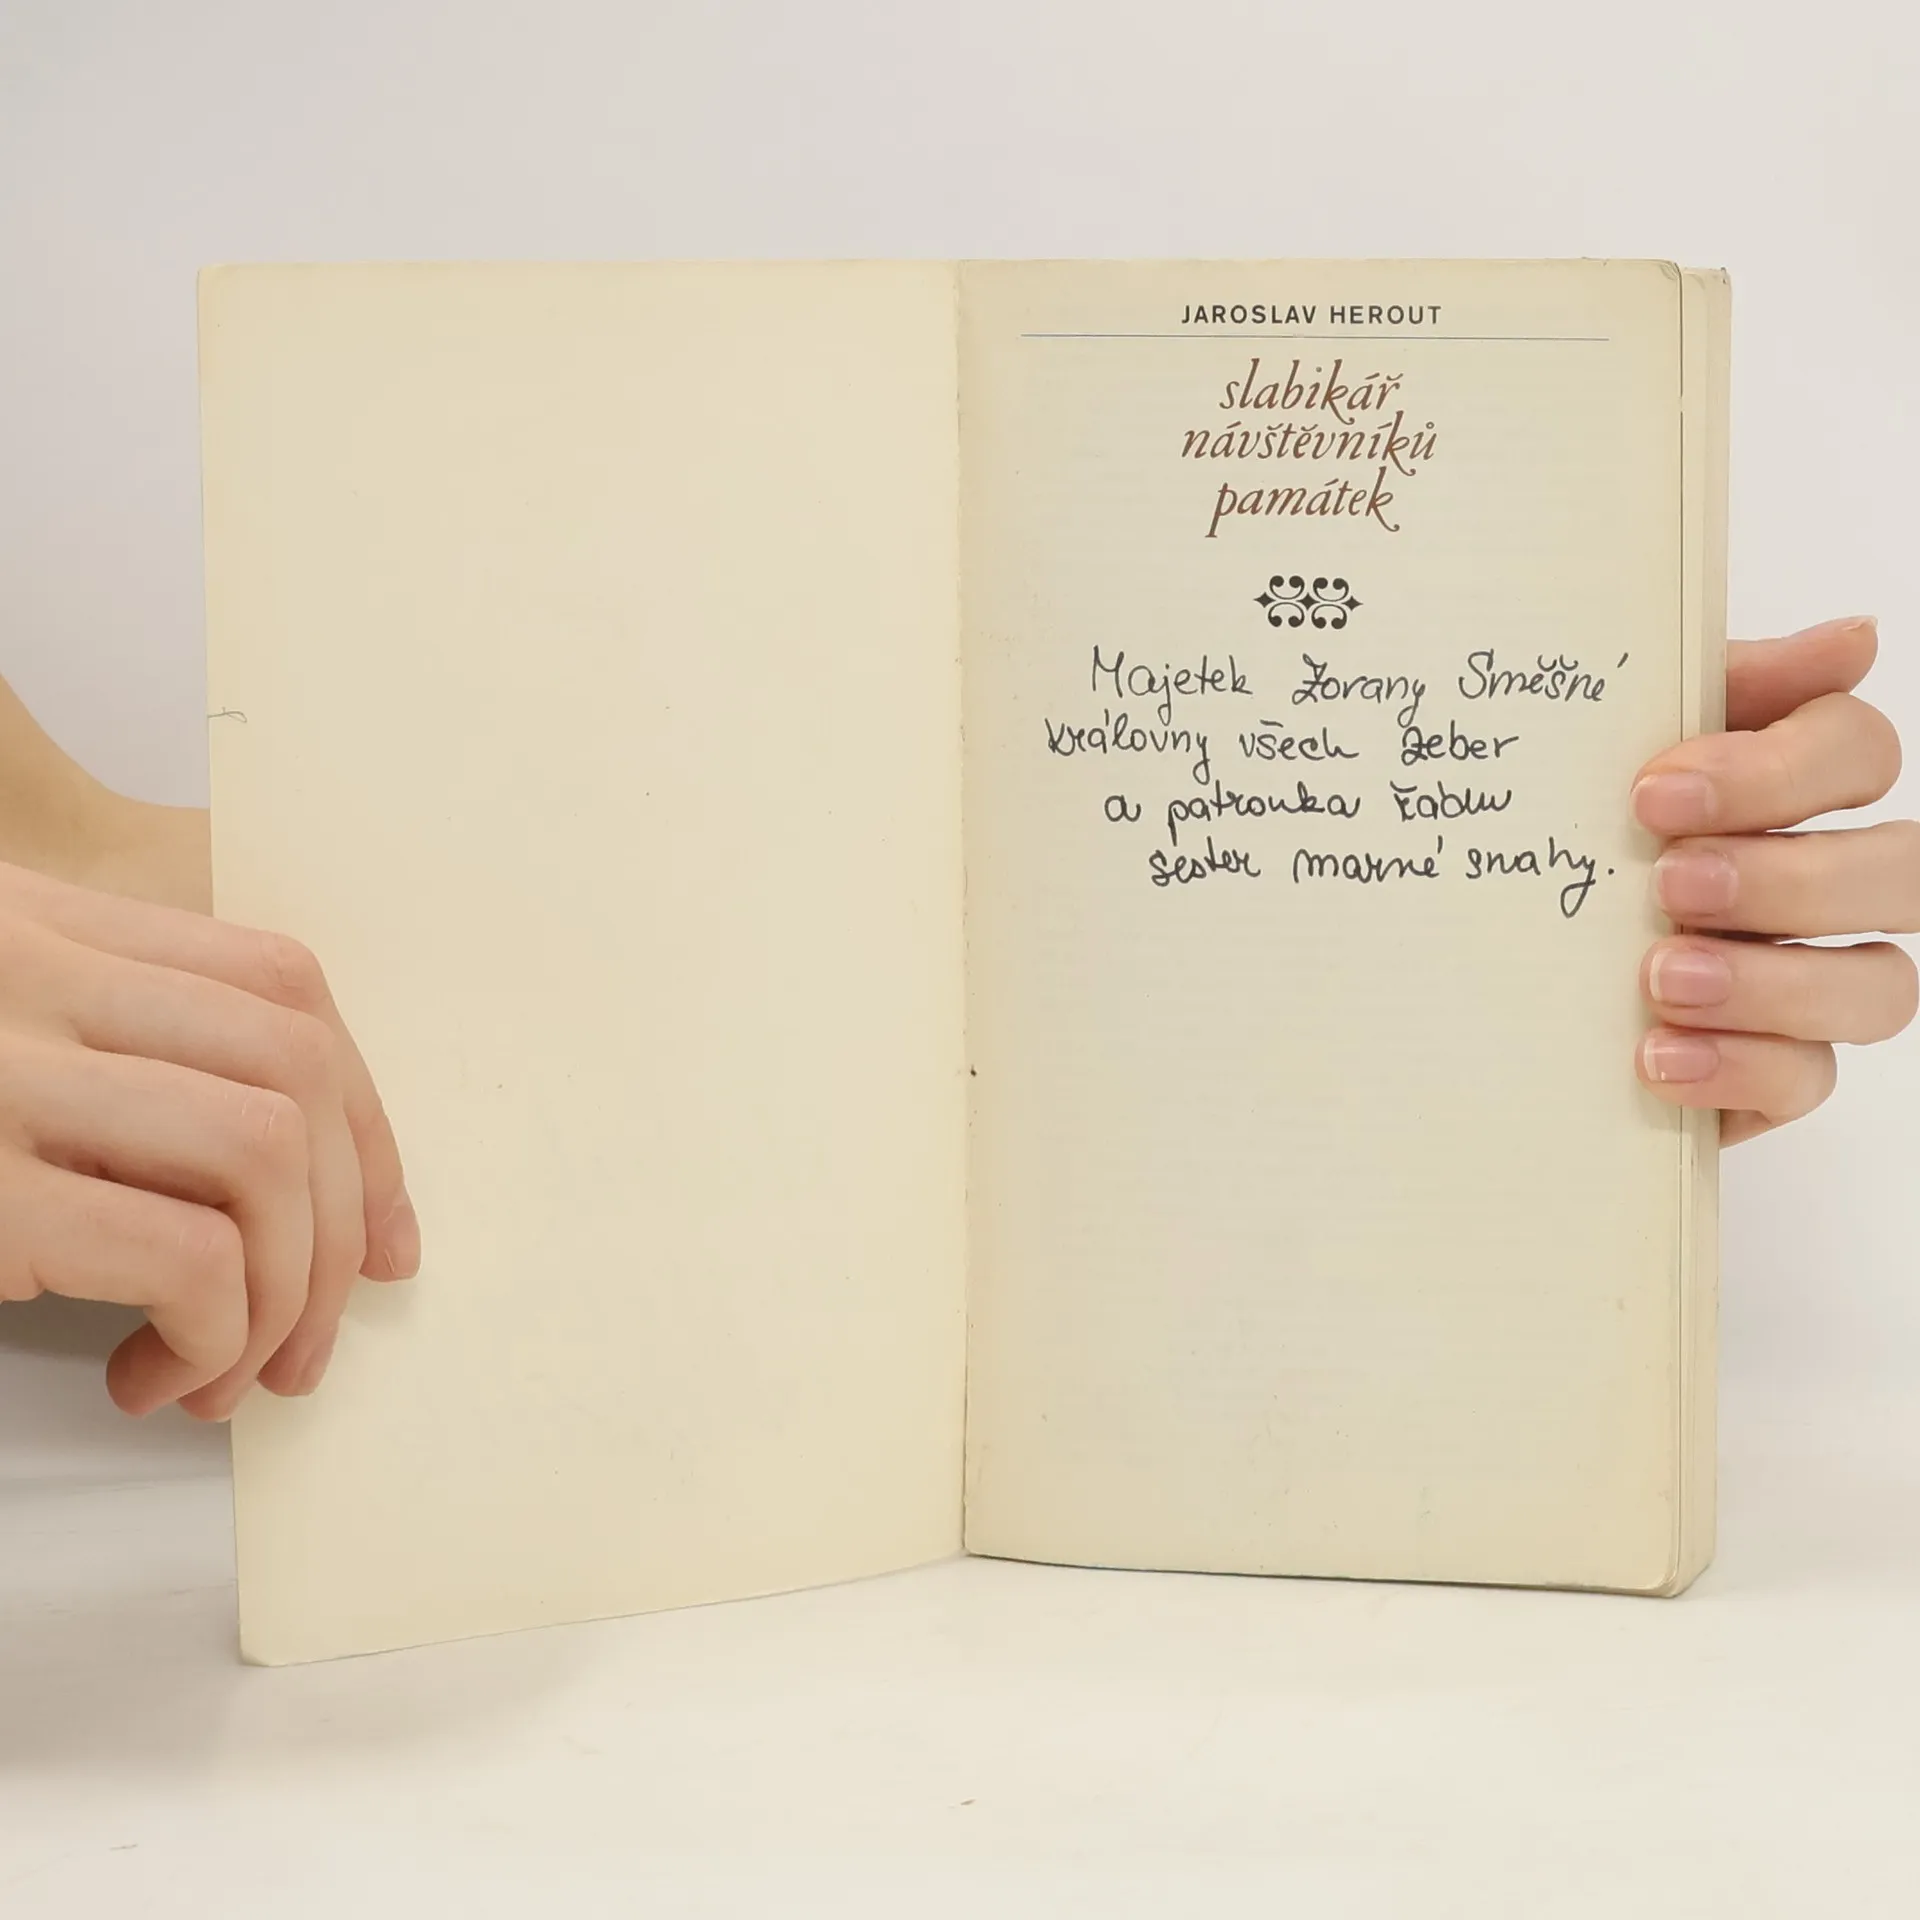 JAROSLAV HEROUT
slabikář
návštěvníků
památek
Majetek Zorany Směšné
královny všech zeber
a patronka řádu
sester marné snahy.